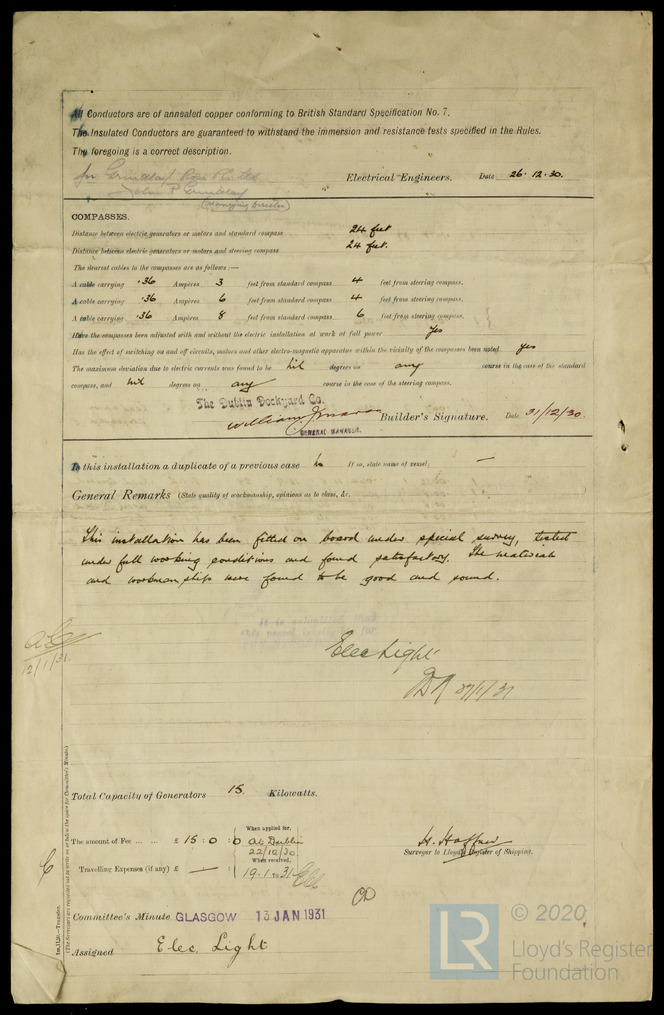 All Conductors are of annealed copper conforming to British Standard Specification No. 7.
The Insulated Conductors are guaranteed to withstand the immersion and resistance tests specified in the Rules.
The foregoing is a correct description.
for
John P
(Managing Director)
Electrical Engineers. Date 26.12.30.
COMPASSES.
Distance between electric generators or motors and standard compass 24 feet
Distance between electric generators or motors and steering compass 24 feet.
The nearest cables to the compasses are as follows:—
A cable carrying .36 Ampères 3 feet from standard compass 4 feet from steering compass.
A cable carrying .36 Ampères 6 feet from standard compass 4 feet from steering compass.
A cable carrying .36 Ampères 8 feet from standard compass 6 feet from steering compass.
Have the compasses been adjusted with and without the electric installation at work at full power Yes
Has the effect of switching on and off circuits, motors and other electro-magnetic apparatus within the vicinity of the compasses been noted yes
The maximum deviation due to electric currents was found to be Nil degrees on any course in the case of the standard
compass, and nil degrees on any course in the case of the steering compass.
The Dublin Dockyard Co.
William
GENERAL MANAGER.
Builder's Signature. Date 31/12/30.
Is this installation a duplicate of a previous case No If so, state name of vessel —
General Remarks (State quality of workmanship, opinions as to class, &c.
This installation has been fitted on board under special survey, tested
under full working conditions and found satisfactory. The materials
and workmanship were found to be good and sound.
It is submitted that
this vessel is eligible for
Elec Light
27/1/31
12/1/31
Total Capacity of Generators 15 Kilowatts.
The amount of Fee ... ... £ 15 : 0 : 0
When applied for,
At Dublin
22/12/30
When received,
19.1.31
Travelling Expenses (if any) £ —
Surveyor to Lloyd's Register of Shipping.
Committee's Minute GLASGOW 13 JAN 1931
Assigned Elec. Light
(The Surveyors are requested not to write on or below the space for Committee's Minute.)
LR
© 2020
Lloyd's Register
Foundation